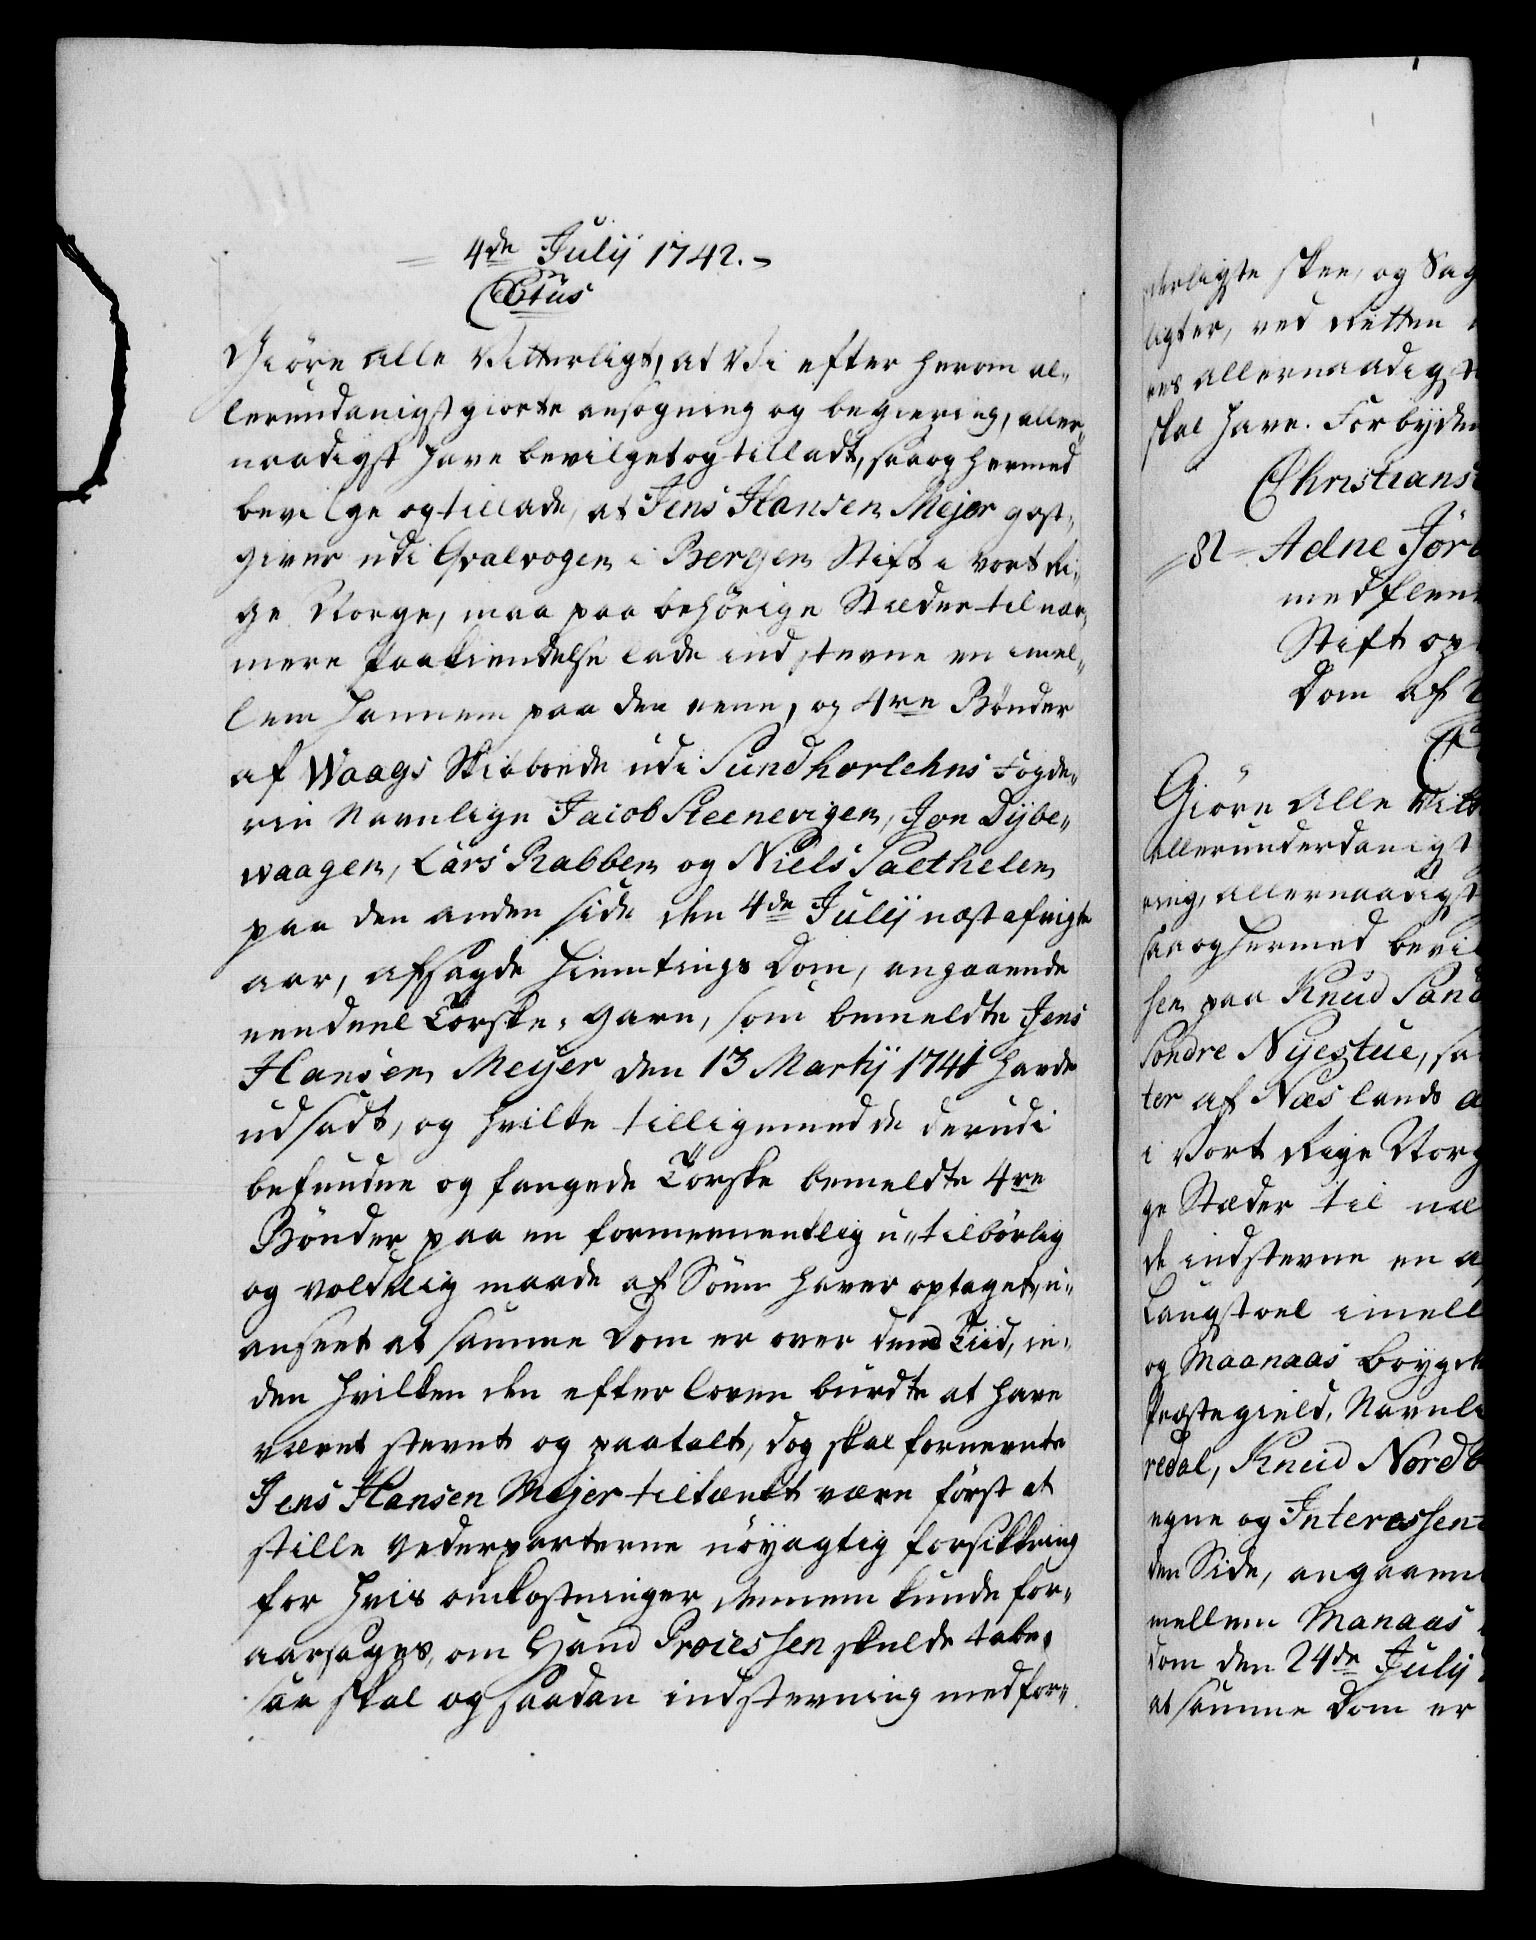 4de Julij 1742.
C6tus
Giöre alle Vitterligt, at Vi efter herom al-
lerundanigst giorte ansøgning og begiering, aller-
naadigst have bevilget og tilladt, saa og hermed
bevilge og tillade, at Jens Hansen Mejer gost-
giver udi Qvalvogen i Bergen Stift i vort Ri-
ge Norge, maa paa behörige Stæder til nær-
mere Paakiendelse lade indstevne en imel-
lem hannem paa den eene, og 4re Bönder
af Waags Skibrede udi Sundhorlehns Fogde-
rie Navnlige Jacob Steenevigen, Jon Dybe-
waagen, Lars Rabben og Niels Saethelen
paa den anden side den 4de Julij næst afvigte
aar, afsagde Hiemtings Dom, angaaende
eendeel Torske-garn, som bemeldte Jens
Hansen Meyer den 13 Martij 1741 havde
udsadt, og hvilke tilligemed de derudi
befundne og fangede Torske bemeldte 4re
Bönder paa en formeenentlig u-tilbörlig
og voldelig maade af Söen haver optaget, u-
anseet at samme Dom er over dend Tiid, in-
den hvilken den efter loven burdte at have
været stevnt og paatalt, dog skal fornevnte
Jens Hansen Mejer tiltænkt være först at
stille Vederparterne nöyagtig forsikkring
for hvis omkostninger dennem kunde for-
aarsages, om Hand Processen skulde tabe,
saa skal og saadan indstevning medfor-
derligste skee, og Sag
ligter, ved Retten
es allernaadigst
skal have. Forbyden
Christians
81 Adne Jör
med fleere
Stift op
Dom af
Giöre Alle Vitt
Allerunderdanigst
ring, allernaadigst
saa og hermed bevil
sen paa Knud Sand
Söndre Nyestue, sa
ter af Næs lands
i Vort Rige Norg
ge Stæder til næ
de indstevne en a
Langstoel imell
og Maanaas bøygd
Præstegield, Navnl
redal, Knud Nordb
egne og Interessen
den Side, angaaen
mellem Manaas
dom den 24de July
at samme Dom er